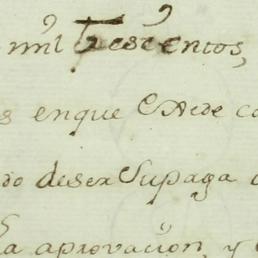 mil trescientos,
s enque ha de co
do deser Supaga
la aprovacion, y